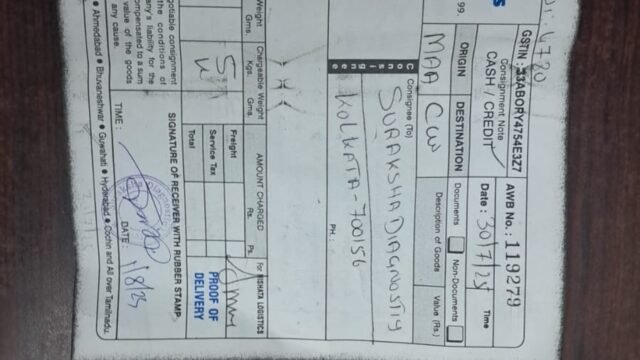 GSTIN : 33ABORY4754E3Z7
AWB No.: 119279
Consignment Note
CASH / CREDIT
Date : 30/7/25
Time
ORIGIN
DESTINATION
Documents
Non-Documents
MAA
CCU
Description of Goods
Value (Rs.)
Consignee
Consignee (To)
SURAKSHA DIAGNOSTIC
KOLKATA - 700156
PH. :
Weight
Gms.
Chargeable Weight
Kgs.
Gms.
AMOUNT CHARGED
Rs.
Ps.
For NISHATA LOGISTICS
5
Freight
Service Tax
Total
PROOF OF
DELIVERY
SIGNATURE OF RECEIVER WITH RUBBER STAMP
TIME :
DATE : 1/8/25
negotiable consignment
the conditions of
any's liability for the
compensated to a sum
value of the goods
any cause.
Ahmedabad ● Bhuvaneshwar ● Guwahati ● Hyderabad ● Cochin and All over Tamilnadu,